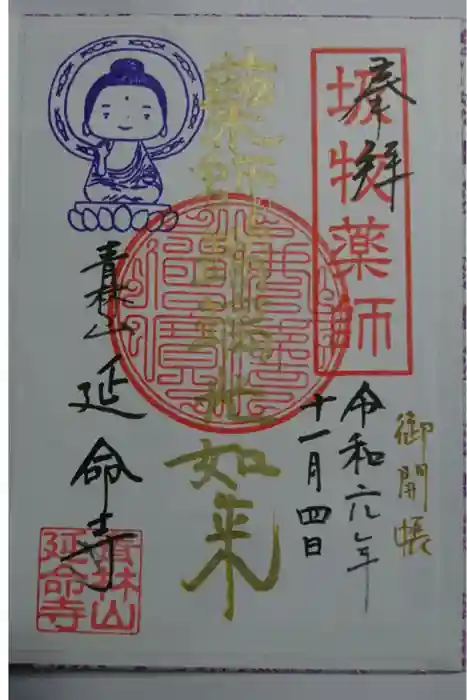 奉拝
城牧薬師
御開帳
令和六年
十一月四日
薬師瑠璃光如来
青林山
延命寺
青林山
延命寺